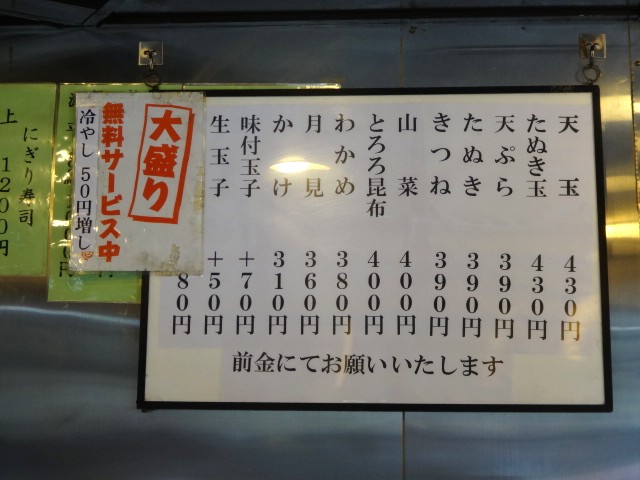 天玉 430円
たぬき玉 430円
天ぷら 390円
たぬき 390円
きつね 390円
山菜 400円
とろろ昆布 400円
わかめ 380円
月見 360円
かけ 310円
味付玉子 +70円
生玉子 +50円
80円
前金にてお願いいたします
大盛り
無料サービス中
冷やし 50円増し
にぎり寿司
上 1200円